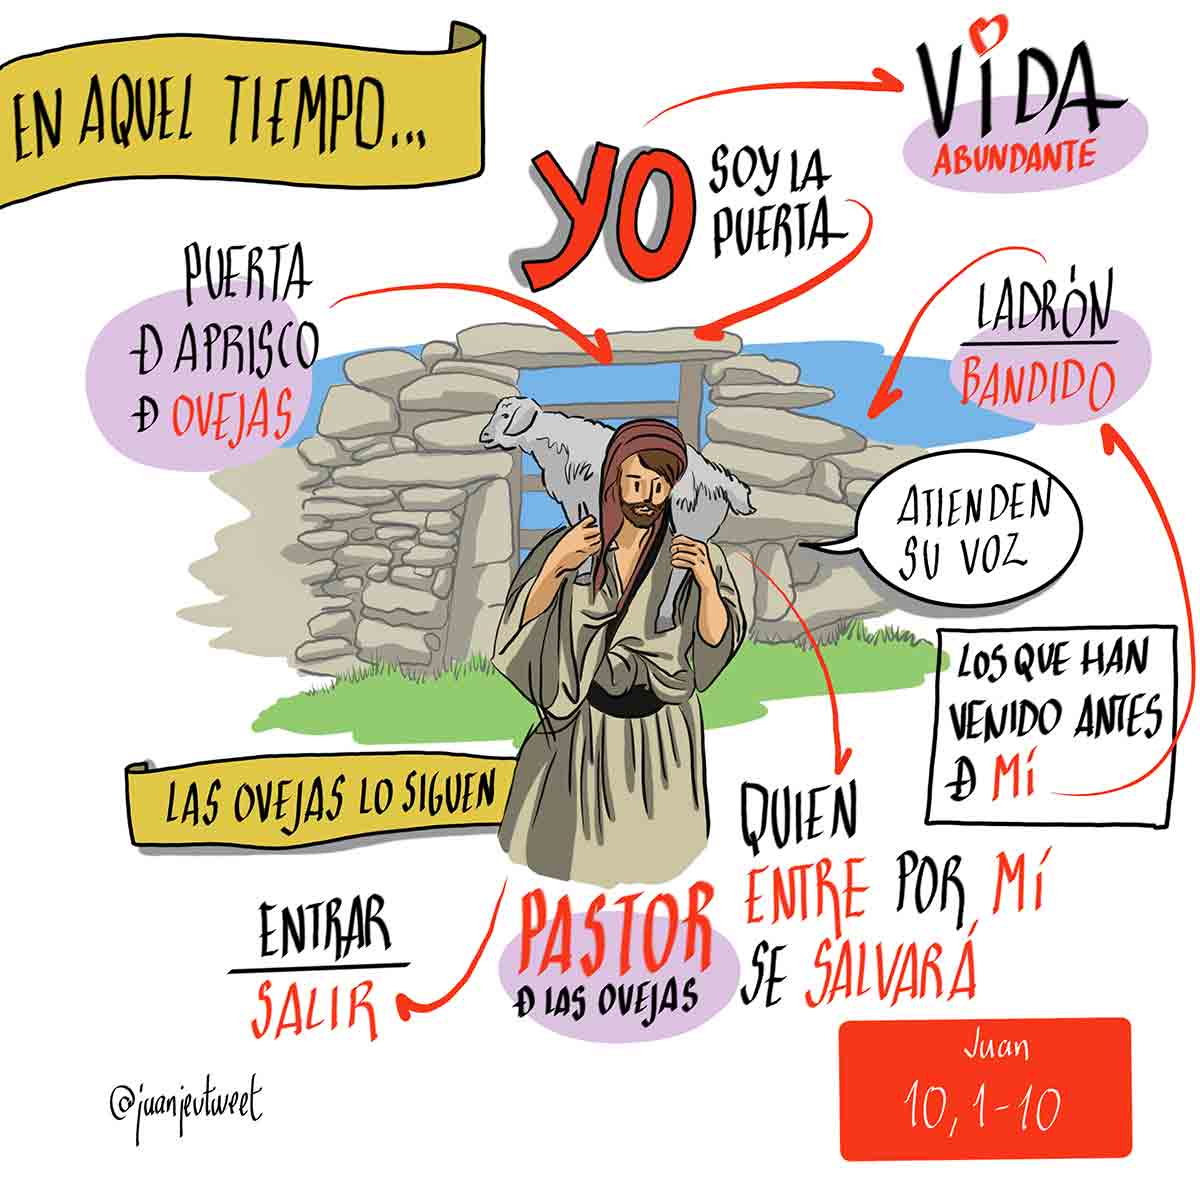 EN AQUEL TIEMPO...
VIDA
ABUNDANTE
YO
SOY LA
PUERTA
PUERTA
Đ APRISCO
Đ OVEJAS
LADRÓN
BANDIDO
ATIENDEN
SU VOZ
LOS QUE HAN
VENIDO ANTES
Đ MÍ
LAS OVEJAS LO SIGUEN
QUIEN
ENTRE POR MÍ
SE SALVARÁ
ENTRAR
SALIR
PASTOR
Đ LAS OVEJAS
Juan
10, 1-10
@juanjevtweet